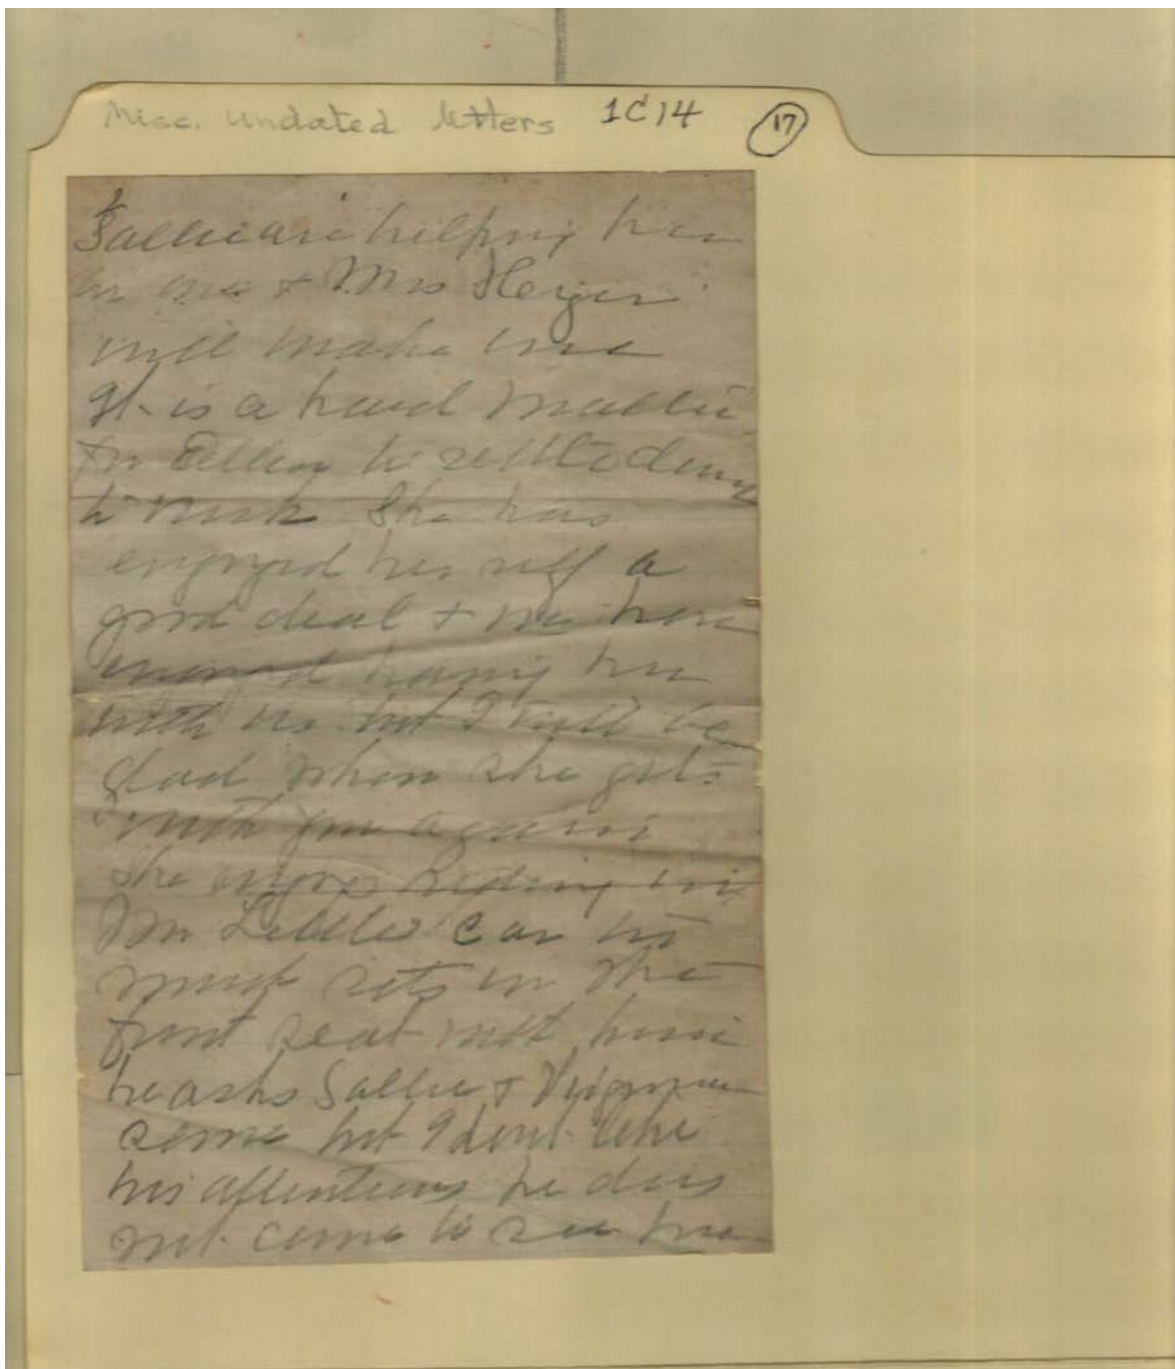 Misc. undated letters 1C14 17
Sallie are helping her
& Mrs Heyer
will make one
It is a hard matter
for Ellen to settle down
to work She has
enjoyed her self a
good deal & we have
enjoyed having her
with us but I will be
glad when she gets
with you again
She enjoys riding in
Mr Car so
much sits in the
front seat with him
he asks Sallie &
some but I dont like
his attentions he does
not come to see her